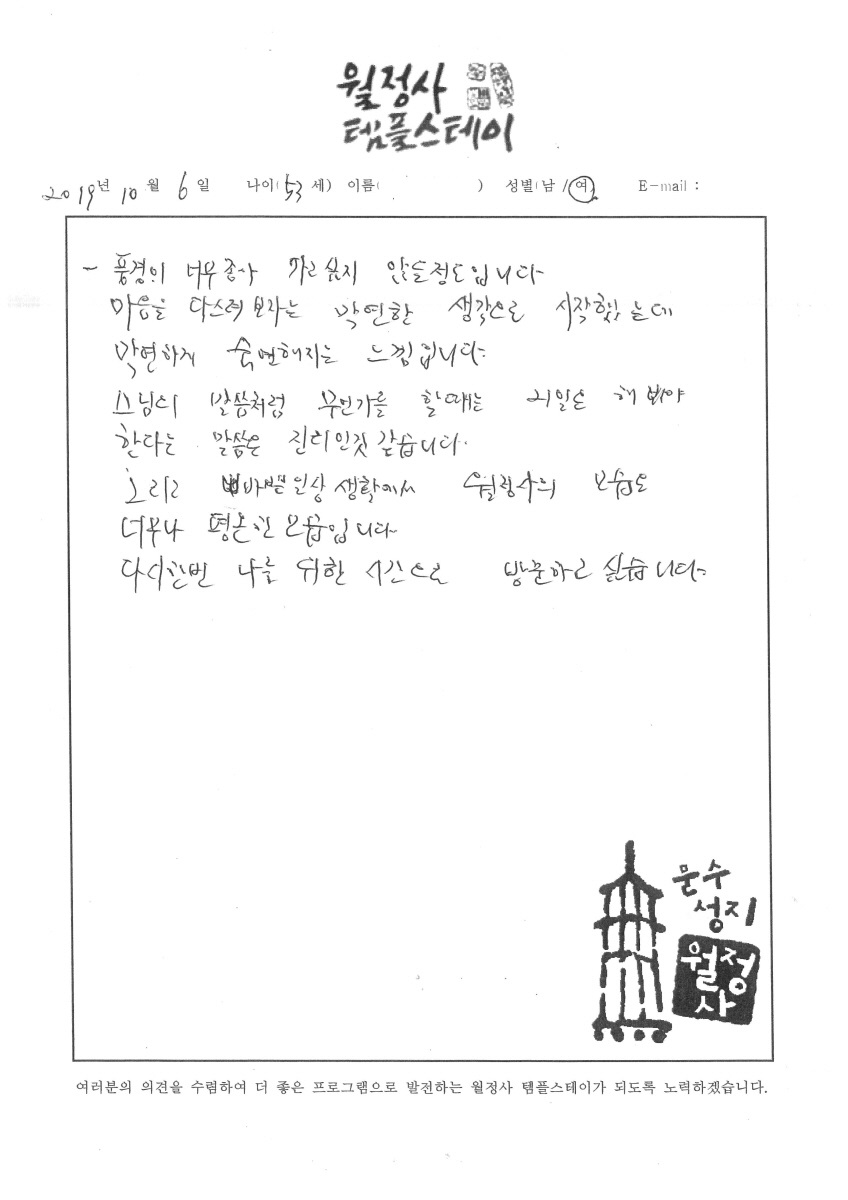 월정사
템플스테이
2019년 10월 6일 나이(53세) 이름( ) 성별(남/여) E-mail :
- 풍경이 너무좋아 가고싶지 않을정도입니다
마음을 다스려보자는 막연한 생각으로 시작했는데
막연하게 숙연해지는 느낌입니다.
스님의 말씀처럼 무언가를 할때는 21일은 해봐야
한다는 말씀은 진리인것 같습니다.
그리고 바쁜일상생활에서 월정사의 모습은
너무나 평온한 모습입니다
다시한번 나를 위한 시간으로 방문하고 싶습니다.
문수
성지
월정
사
여러분의 의견을 수렴하여 더 좋은 프로그램으로 발전하는 월정사 템플스테이가 되도록 노력하겠습니다.